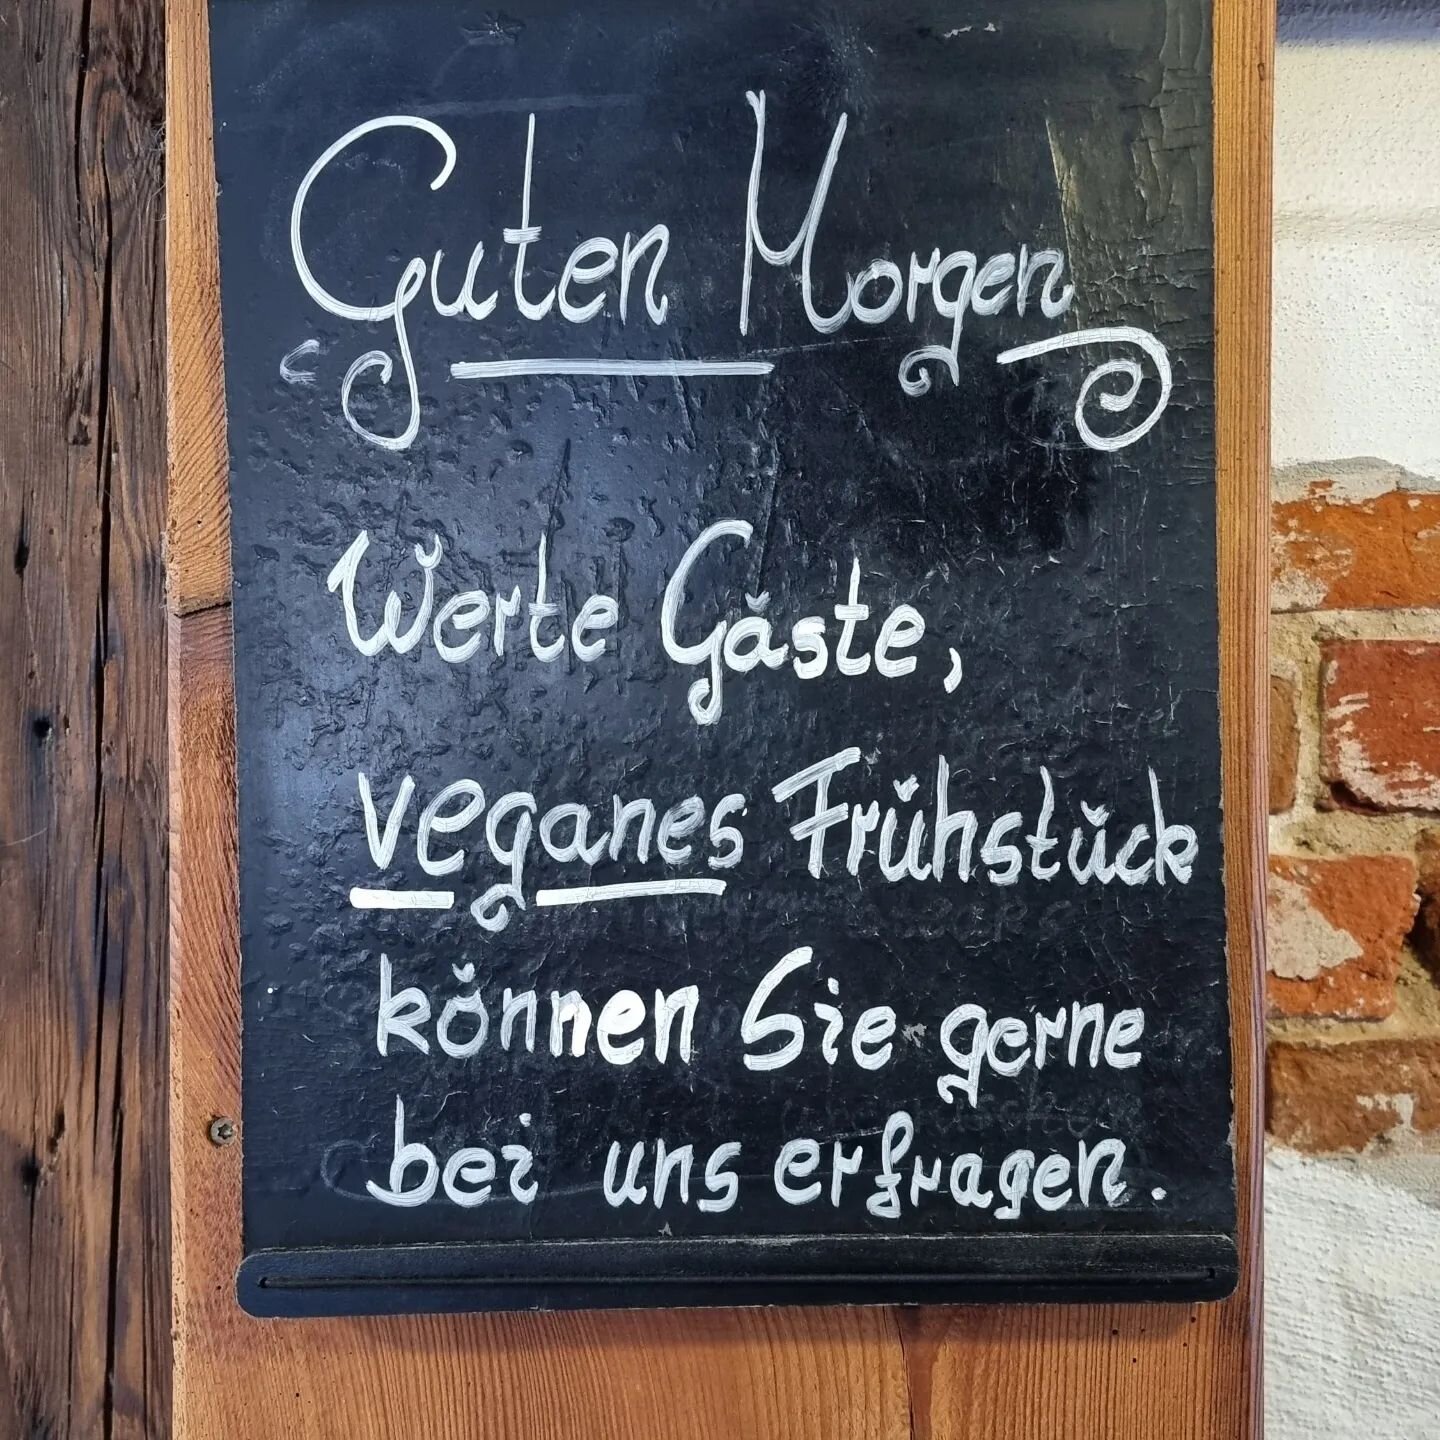 Guten Morgen
Werte Gäste,
veganes Frühstück
können Sie gerne
bei uns erfragen.